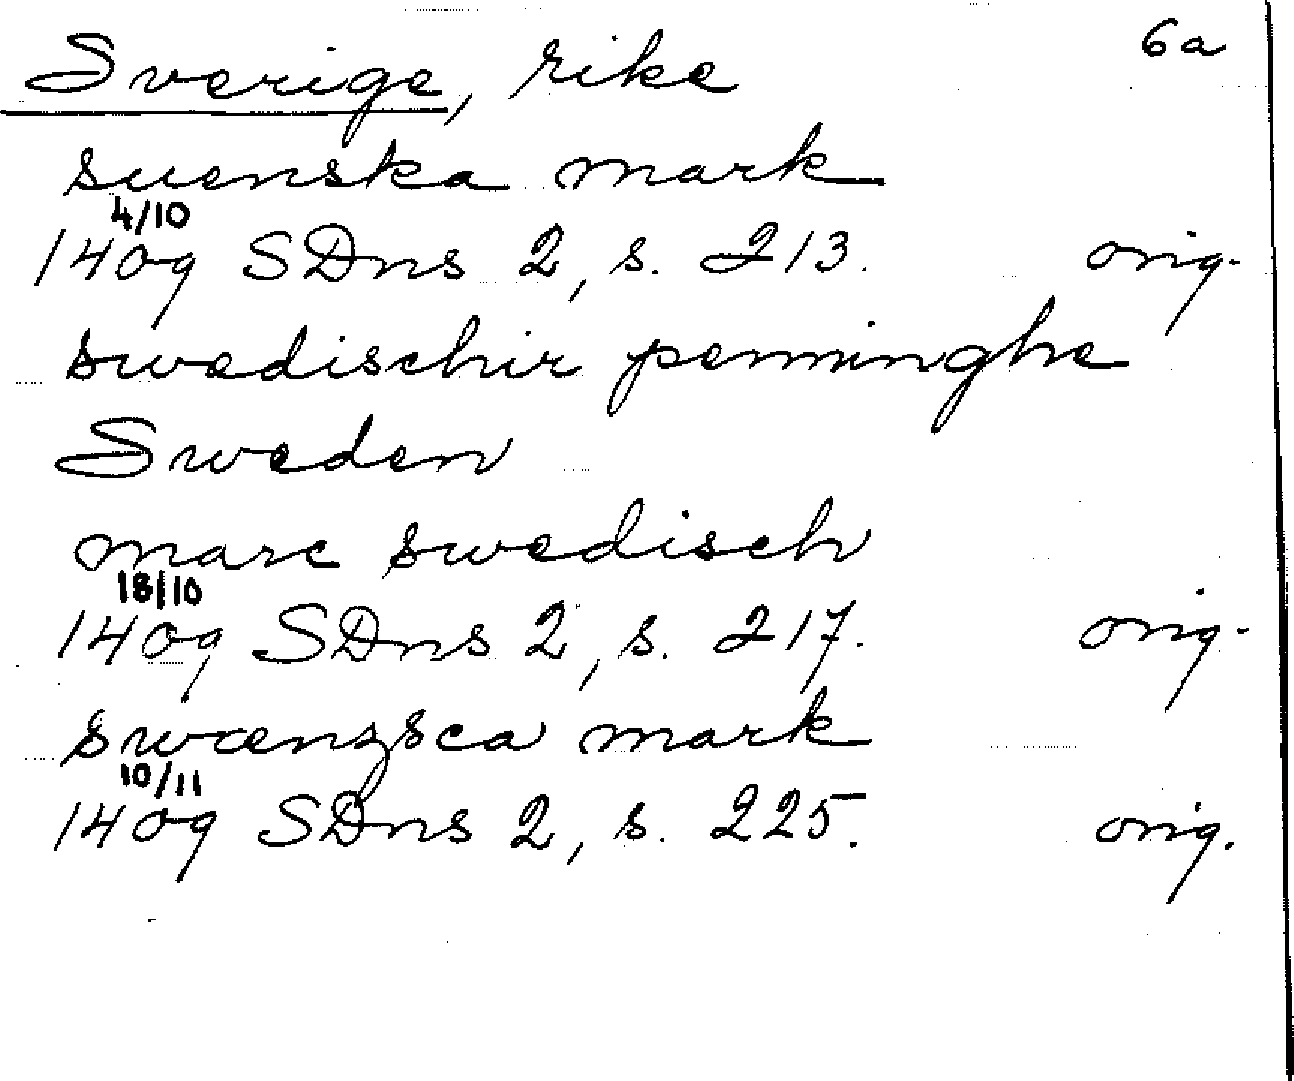 Sverige, rike 6a
suenska mark
4/10
1409 SDns 2, s. 213. orig.
swedischir penninghe
Sweden
marc swedisch
18/10
1409 SDns 2, s. 217. orig.
swænzsca mark
10/11
1409 SDns 2, s. 225. orig.